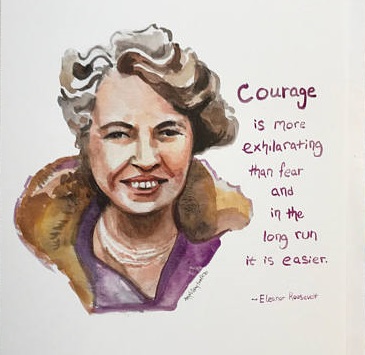 Courage
is more
exhilarating
than fear
and
in the
long run
it is easier.
~Eleanor Roosevelt